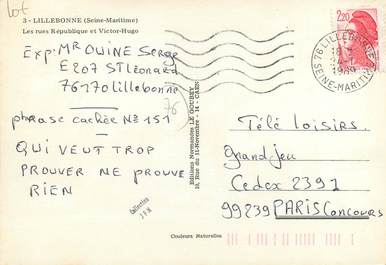 Lot
3 - LILLEBONNE (Seine-Maritime)
Les rues République et Victor-Hugo
Exp: MR OUINE Serge
E207 St Léonard
76170 lillebonne
76
phrase cachée No 151
QUI VEUT TROP
PROUVER NE PROUVE
RIEN
Collection
Editions Normandes LE GOUBEY
23, Rue du 11-Novembre - 14 - CAEN
2,20
76 LILLEBONNE
1989
SEINE-MARITIME
Télé loisirs.
Grand jeu
Cedex 2391
99239 PARIS Concours
Couleurs Naturelles